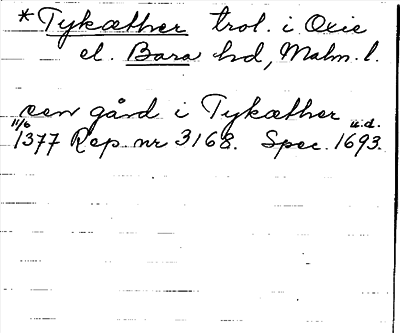 *Tykæther trol. i Oxie
el. Bara hd, Malm. l.
een gård i Tykæther u.d.
11/6 1377 Rep nr 3168. Spec. 1693.